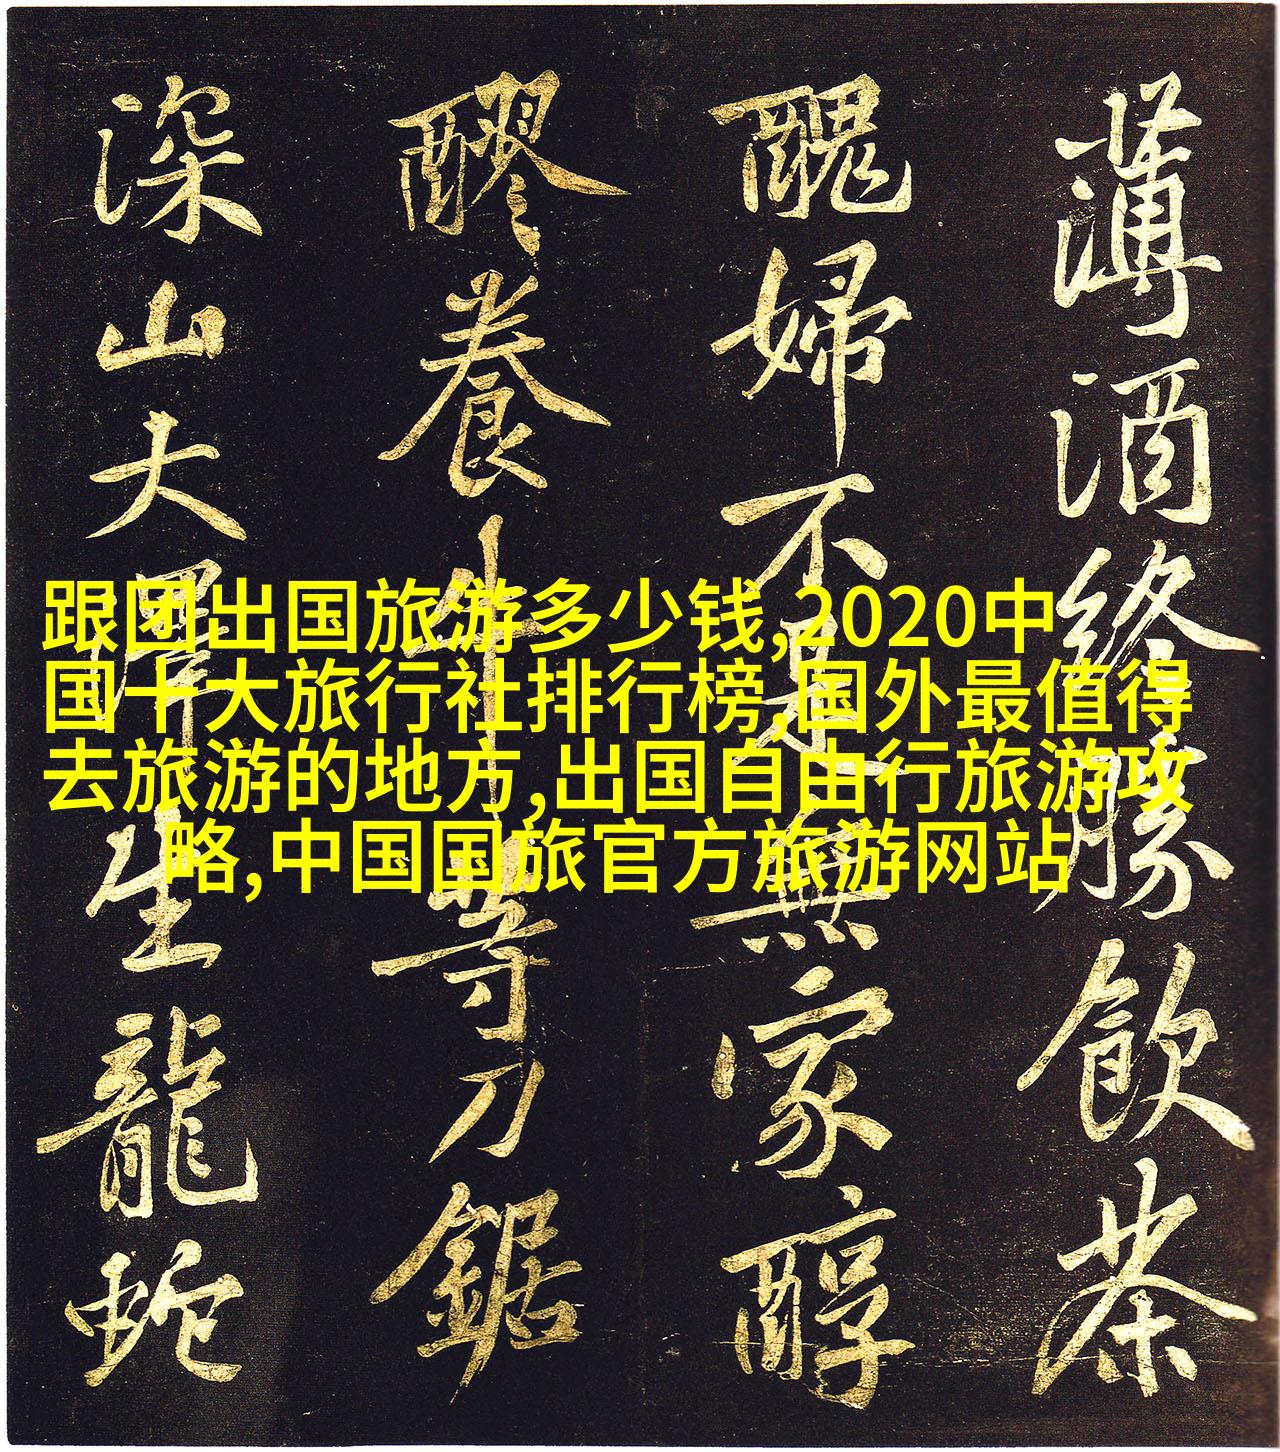 跟团出国旅游多少钱,2020中
国十大旅行社排行榜,国外最值得
去旅游的地方,出国自由行旅游攻
略,中国国旅官方旅游网站
薄酒終勝飲茶
醜婦不是無家醇
醪養牛等刀鋸
深山大澤生龍蛇